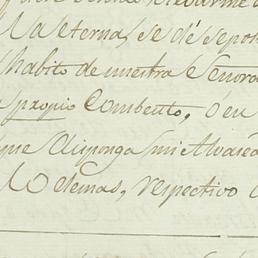 la eterna, se dé sepo
habito de nuestra Señora
propio Combento, o en
que disponga mi Alvacea
lo demas, respectivo